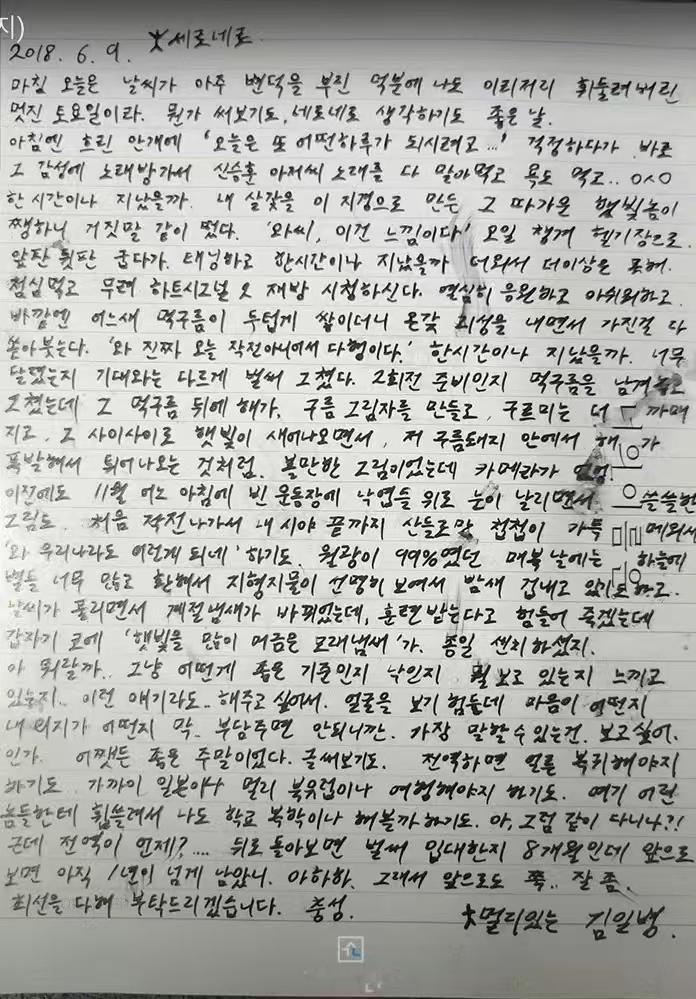 지)
2018. 6. 9. 大세로네로.
마침 오늘은 날씨가 아주 변덕을 부린 덕분에 나도 이리저리 휘둘려버린
멋진 토요일이라. 뭔가 써보기도, 네로네로 생각하기도 좋은 날.
아침엔 흐린 안개에 '오늘은 또 어떤하루가 되시려고...' 걱정하다가 바로
그 감성에 노래방가서 신승훈 아저씨 노래를 다 말아먹고 욕도 먹고.. 0ㅅ0
한시간이나 지났을까. 내 살갗을 이 지경으로 만든 그 따가운 햇빛놈이
쨍하니 거짓말 같이 떴다. '와씨, 이건 느낌이다' 오일 챙겨 헬기장으로.
앞판 뒷판 굽다가. 태닝하고 한시간이나 지났을까 더워서 더이상은 못해.
점심먹고 무려 하트시그널 2 재방 시청하신다. 열심히 응원하고 아쉬워하고.
바깥엔 어느새 먹구름이 두텁게 쌓이더니 온갖 괴성을 내면서 가진걸 다
쏟아붓는다. '와 진짜 오늘 작전아니어서 다행이다.' 한시간이나 지났을까. 너무
달렸는지 기대와는 다르게 벌써 그쳤다. 2회전 준비인지 먹구름을 남겨놓고
그쳤는데 그 먹구름 뒤에 해가, 구름 그림자를 만들고, 구르미는 더 까매
지고, 그 사이사이로 햇빛이 새어나오면서, 저 구름돼지 안에서 해가
폭발해서 튀어나오는 것처럼. 볼만한 그림이었는데 카메라가
이전에도 11월 어느 아침에 빈 운동장에 낙엽들 위로 눈이 날리면서 쓸쓸한
그림도, 처음 작전나가서 내 시야 끝까지 산들로만 첩첩이 가득 메워서
'와 우리나라도 이렇게 되네' 하기도. 월광이 99%였던 매복날에는 하늘에
별들 너무 많고 환해서 지형지물이 선명히 보여서 밤새 겁내고 있기도하고.
날씨가 풀리면서 계절냄새가 바뀌었는데, 훈련받는다고 힘들어 죽겠는데
갑자기 코에 '햇빛을 많이 머금은 모래냄새'가. 종일 센치하셨지.
아 뭐랄까.. 그냥 어떻게 좁은 기준인지 낙인지 뭘 보고 있는지 느끼고
있는지.. 이런 얘기라도.. 해주고싶어서. 얼굴을 보기 힘든데 마음이 어떤지
내 의지가 어떤지 막.. 부담주면 안되니깐. 가장 말할수있는건. 보고싶어.
인가. 어쨌든 좋은 주말이었다. 글써보기도. 전역하면 얼른 복귀해야지
하기도. 가까이 일본이나 멀리 북유럽이나 여행해야지 하기도. 여기 어린
놈들한테 휩쓸려서 나도 학교 복학이나 해볼까하기도. 아, 그럼 같이 다니나?!
근데 전역이 언제?.... 뒤로 돌아보면 벌써 입대한지 8개월인데 앞으로
보면 아직 1년이 넘게 남았니. 아하하. 그래서 앞으로도 쭉.. 잘 좀.
최선을 다해 부탁드리겠습니다. 충성.
大멀리있는 김일병.